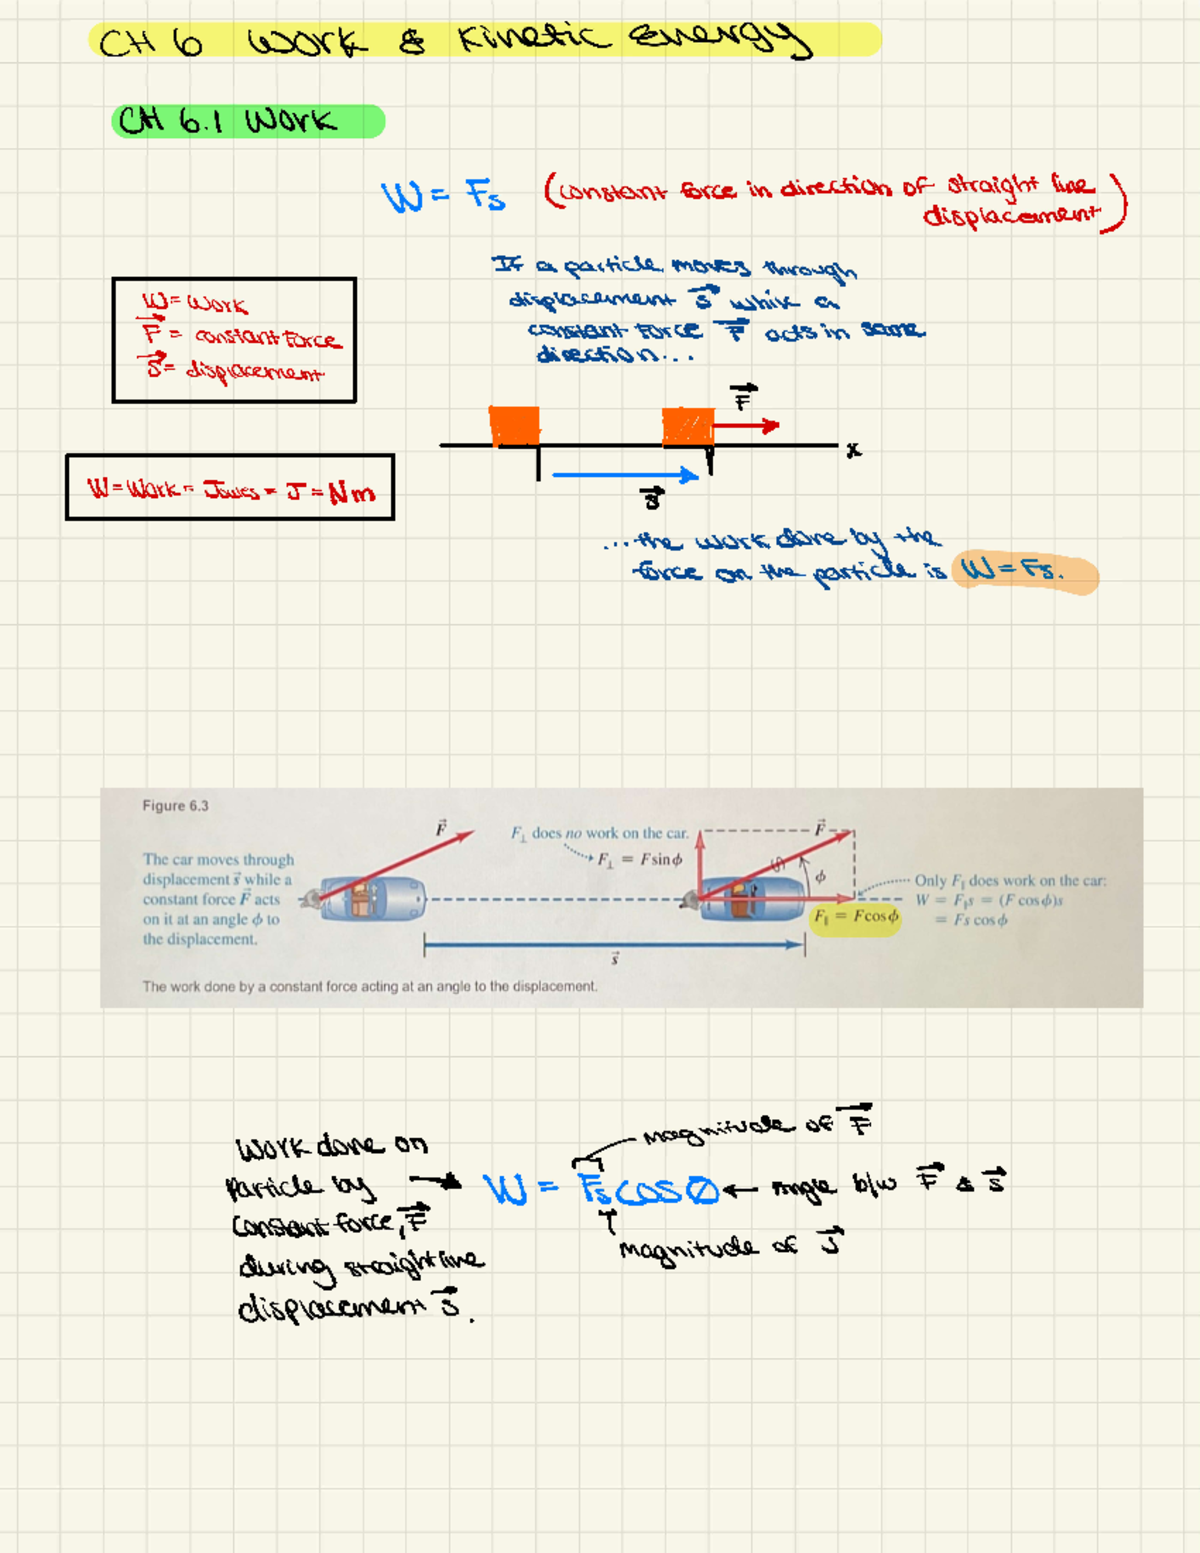 CH 6 Work & Kinetic Energy
CH 6.1 Work
W = Fs (constant force in direction of straight line
displacement)
If a particle moves through
displacement s⃗ while a
constant force F⃗ acts in same
direction...
W = Work
F⃗ = constant force
s⃗ = displacement
F⃗
x
s⃗
W = Work = Joules = J = Nm
...the work done by the
force on the particle is W = Fs.
Figure 6.3
The car moves through
displacement s⃗ while a
constant force F⃗ acts
on it at an angle ϕ to
the displacement.
F⃗
F⊥ does no work on the car.
F⊥ = F sin ϕ
F⃗
ϕ
F∥ = F cos ϕ
Only F∥ does work on the car:
W = F∥s = (F cos ϕ)s
= Fs cos ϕ
s⃗
The work done by a constant force acting at an angle to the displacement.
Work done on
particle by
constant force, F⃗
during straight line
displacement s⃗.
magnitude of F⃗
W = Fs cos Ø ← angle b/w F⃗ & s⃗
magnitude of s⃗